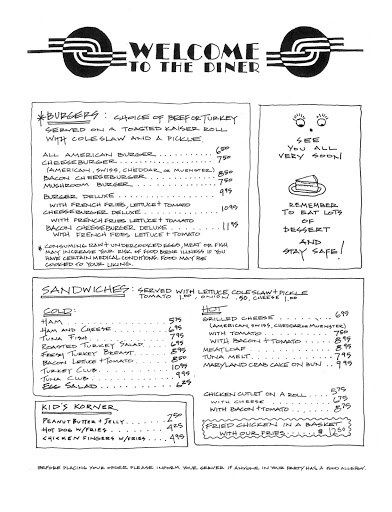 WELCOME
TO THE DINER
*BURGERS: CHOICE OF BEEF OR TURKEY
SERVED ON A TOASTED KAISER ROLL
WITH COLESLAW AND A PICKLE.
ALL AMERICAN BURGER 6.50
CHEESEBURGER 7.50
(AMERICAN, SWISS, CHEDDAR OR MUENSTER)
BACON CHEESEBURGER 8.50
MUSHROOM BURGER 7.50
BURGER DELUXE 9.95
WITH FRENCH FRIES, LETTUCE + TOMATO
CHEESEBURGER DELUXE 10.95
WITH FRENCH FRIES LETTUCE + TOMATO
BACON CHEESEBURGER DELUXE 11.95
WITH FRENCH FRIES, LETTUCE + TOMATO
* CONSUMING RAW + UNDERCOOKED EGGS, MEAT OR FISH
MAY INCREASE YOUR RISK OF FOOD BORNE ILLNESS IF YOU
HAVE CERTAIN MEDICAL CONDITIONS. FOOD MAY BE
COOKED TO YOUR LIKING.
SEE
YOU ALL
VERY SOON!
REMEMBER
TO EAT LOTS
OF
DESSERT
AND
STAY SAFE!
SANDWICHES: SERVED WITH LETTUCE, COLESLAW + PICKLE
TOMATO 1.00, ONION .50, CHEESE 1.00
COLD:
HAM 5.75
HAM AND CHEESE 6.95
TUNA FISH 7.95
ROASTED TURKEY SALAD 6.95
FRESH TURKEY BREAST 8.95
BACON LETTUCE + TOMATO 8.50
TURKEY CLUB 10.95
TUNA CLUB 9.95
EGG SALAD 6.25
HOT
GRILLED CHEESE 6.95
(AMERICAN, SWISS, CHEDDAR OR MUENSTER)
WITH TOMATO 7.50
WITH BACON + TOMATO 8.95
MEATLOAF 8.95
TUNA MELT 7.95
MARYLAND CRAB CAKE ON BUN 9.95
CHICKEN CUTLET ON A ROLL 5.75
WITH CHEESE 6.75
WITH BACON + TOMATO 8.75
FRIED CHICKEN IN A BASKET
WITH OUR FRIES $ 12.50
KID'S KORNER
PEANUT BUTTER + JELLY 2.50
HOT DOG W/FRIES 4.25
CHICKEN FINGERS W/FRIES 4.95
BEFORE PLACING YOUR ORDER PLEASE INFORM YOUR SERVER IF ANYONE IN YOUR PARTY HAS A FOOD ALLERGY.